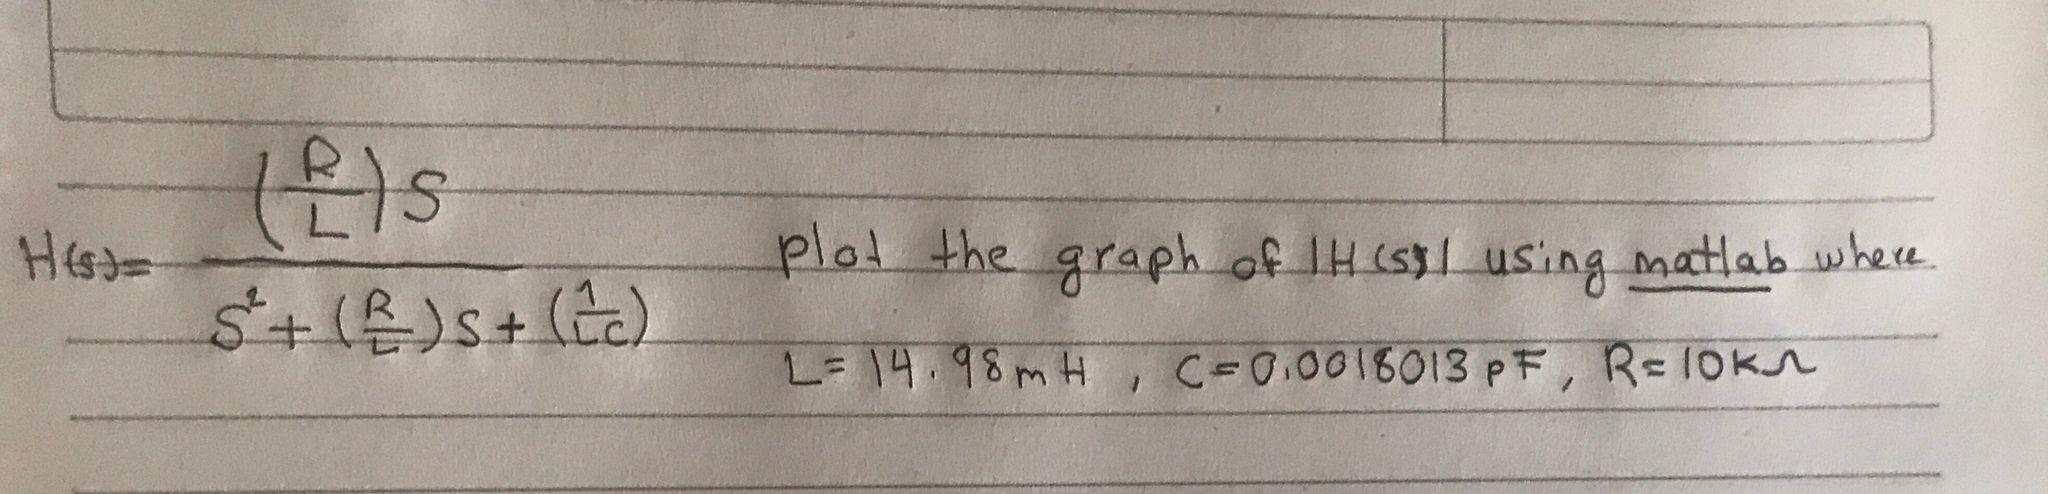 H(s)= (R/L)S / S² + (R/L)S + (1/LC)
plot the graph of |H(s)| using matlab where
L = 14.98 mH , C = 0.0018013 pF , R = 10KΩ